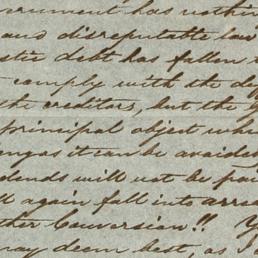 ernment has nothin
and disreputable law
stic debt has fallen
comply with the de
the creditors, but the
principal object whe
long as it can be avoided
dends will not be pai
ll again fall into arrea
ther Conversion!! Y
may deem best, as